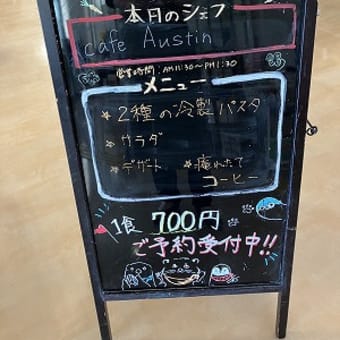 本日のシェフ
cafe Austin
営業時間:AM11:30~PM1:30
メニュー
★2種の冷製パスタ
★サラダ
★デザート ★癒れたて
コーヒー
1食 700円
ご予約受付中!!